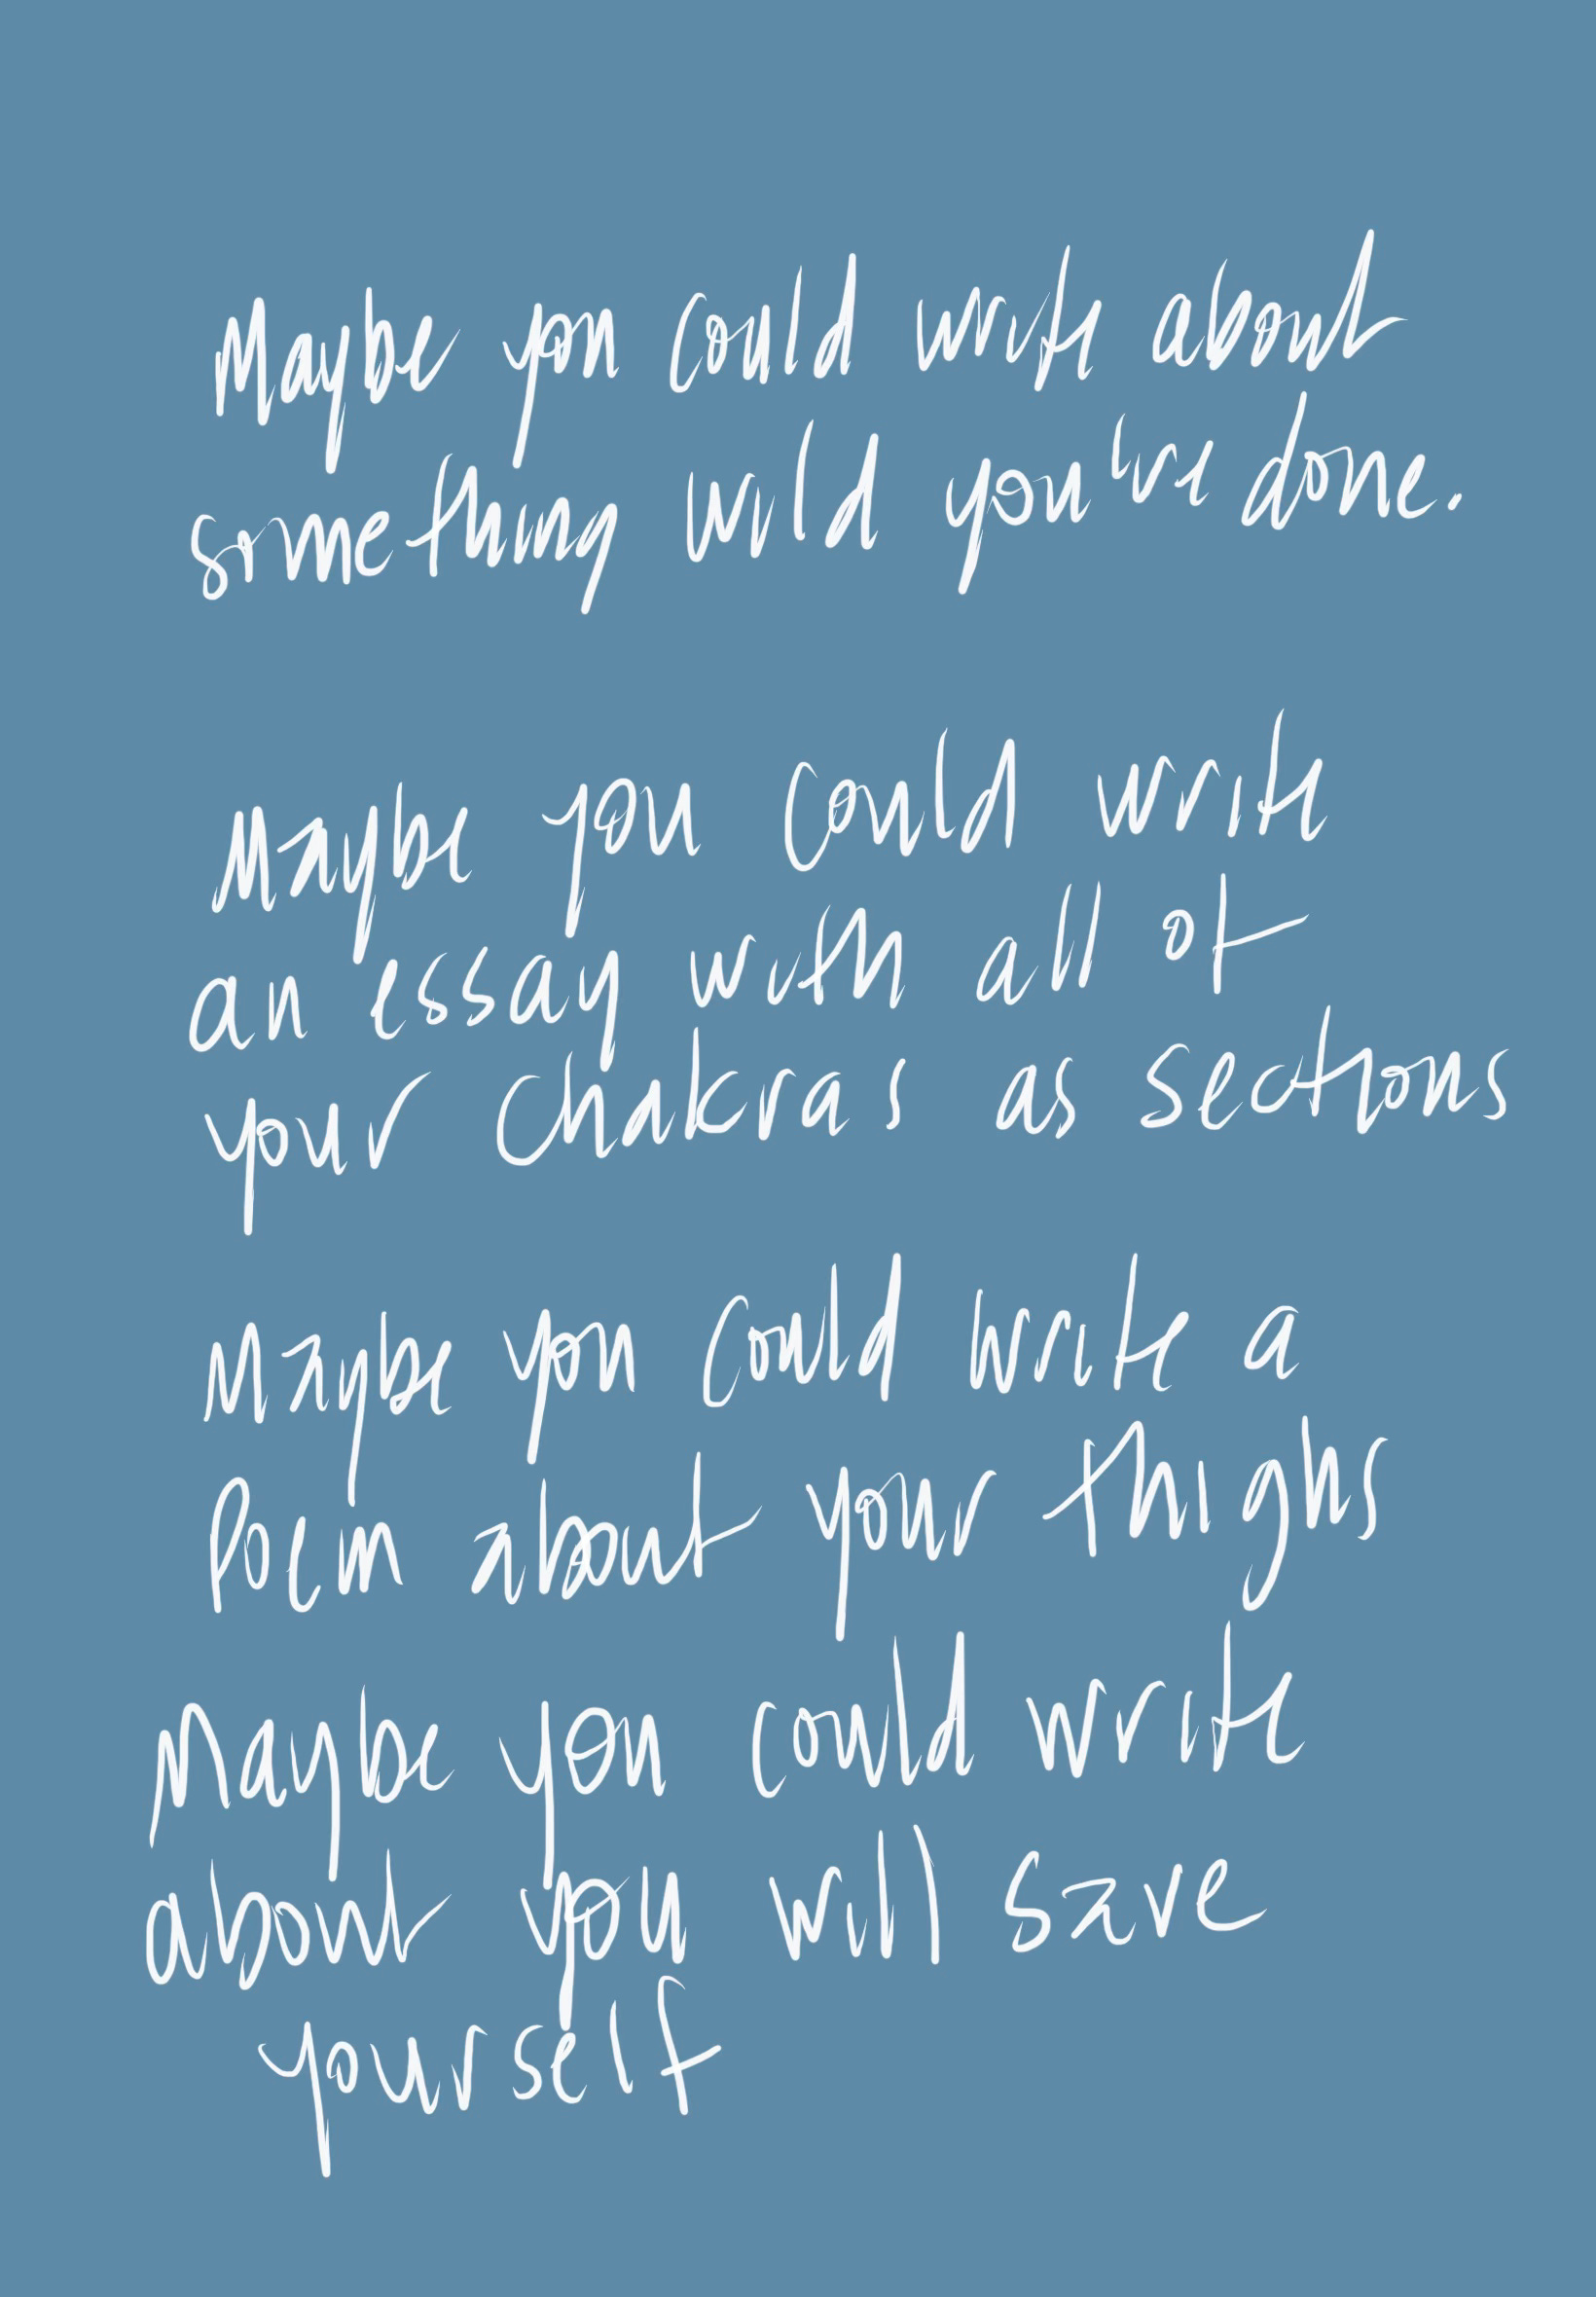 Maybe you could write about
something wild you've done.
Maybe you could write
an essay with all of
your chakras as sections
maybe you could write a
poem about your thighs
Maybe you could write
about you will save
yourself